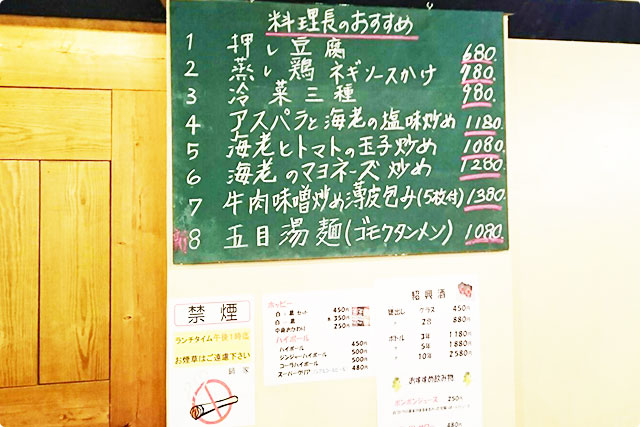 料理長のおすすめ
1 押し豆腐 680.
2 蒸し鶏 ネギソースかけ 780.
3 冷菜三種 980.
4 アスパラと海老の塩味炒め 1180.
5 海老とトマトの玉子炒め 1080.
6 海老のマヨネーズ炒め 1280.
7 牛肉味噌炒め薄皮包み(5枚付) 1380.
新8 五目湯麺(ゴモクタンメン) 1080.
禁煙
ランチタイム午後1時迄
お煙草はご遠慮下さい
ホッピー
白・黒 セット 450円
白・黒 350円
中身おかわり 250円
ハイボール
ハイボール 450円
ジンジャーハイボール 500円
コーラハイボール 500円
スーパークリア 480円
紹興酒
甕出し グラス 450円
〃 2合 880円
ボトル 3年 1180円
〃 5年 1880円
〃 10年 2580円
おすすめ飲み物
ポンポンジュース 250円
480円